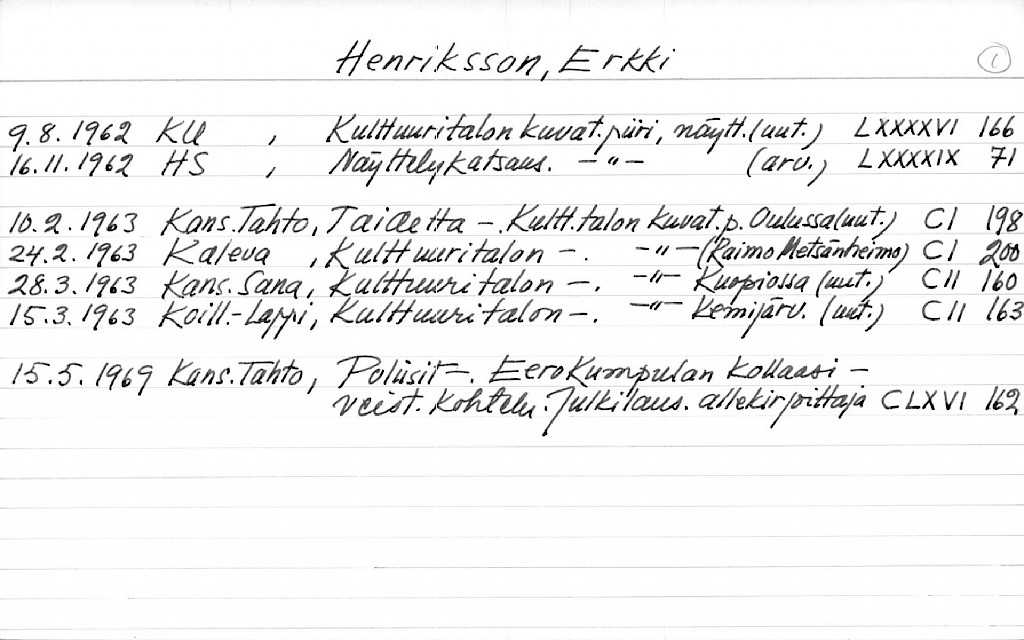 Henriksson, Erkki 1
9.8.1962 KU , Kulttuuritalon kuvat.piiri, näytt. (uut.) LXXXXVI 166
16.11.1962 HS , Näyttelykatsaus. —"— (arv.) LXXXXIX 71
10.2.1963 Kans.Tahto, Taidetta –. Kultt.talon kuvat.p. Oulussa (uut.) CI 198
24.2.1963 Kaleva , Kulttuuritalon –. —"— (Raimo Metsänheimo) CI 200
28.3.1963 Kans.Sana, Kulttuuritalon –. —"— Kuopiossa (uut.) CII 160
15.3.1963 Koill.-Lappi, Kulttuuritalon –. —"— Kemijärv. (uut.) CII 163
15.5.1969 Kans.Tahto, Poliisit –. Eero Kumpulan kollaasi –
veist. kohtelu. Julkilaus. allekirjoittaja CLXVI 162